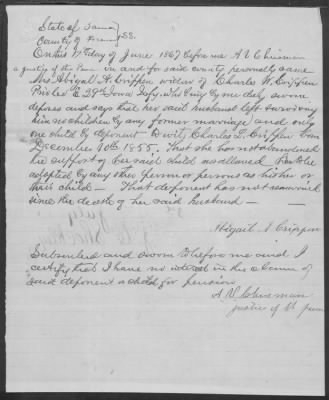 State of Iowa
County of SS.
On this day of June 1867 before me A V Chinaman
a justice of the Peace in and for said county personally came
Mrs Abigail A. Crippen widow of Charles W. Crippen
Co E 29th Iowa Infy, who being by me duly sworn
deposes and says that her said husband left surviving
him no children by any former marriage and only
one child by deponent to wit, Charles L. Crippen born
December 10th 1855. That she has not abandoned
the support of her said child nor allowed to be
adopted by any other person or persons as his her or
their child — That deponent has not remarried
since the death of her said husband —
Abigail A Crippen
Subscribed and sworn to before me and I
certify that I have no interest in the claim of
said deponent &amp; child for pension
A V
justice of the peace